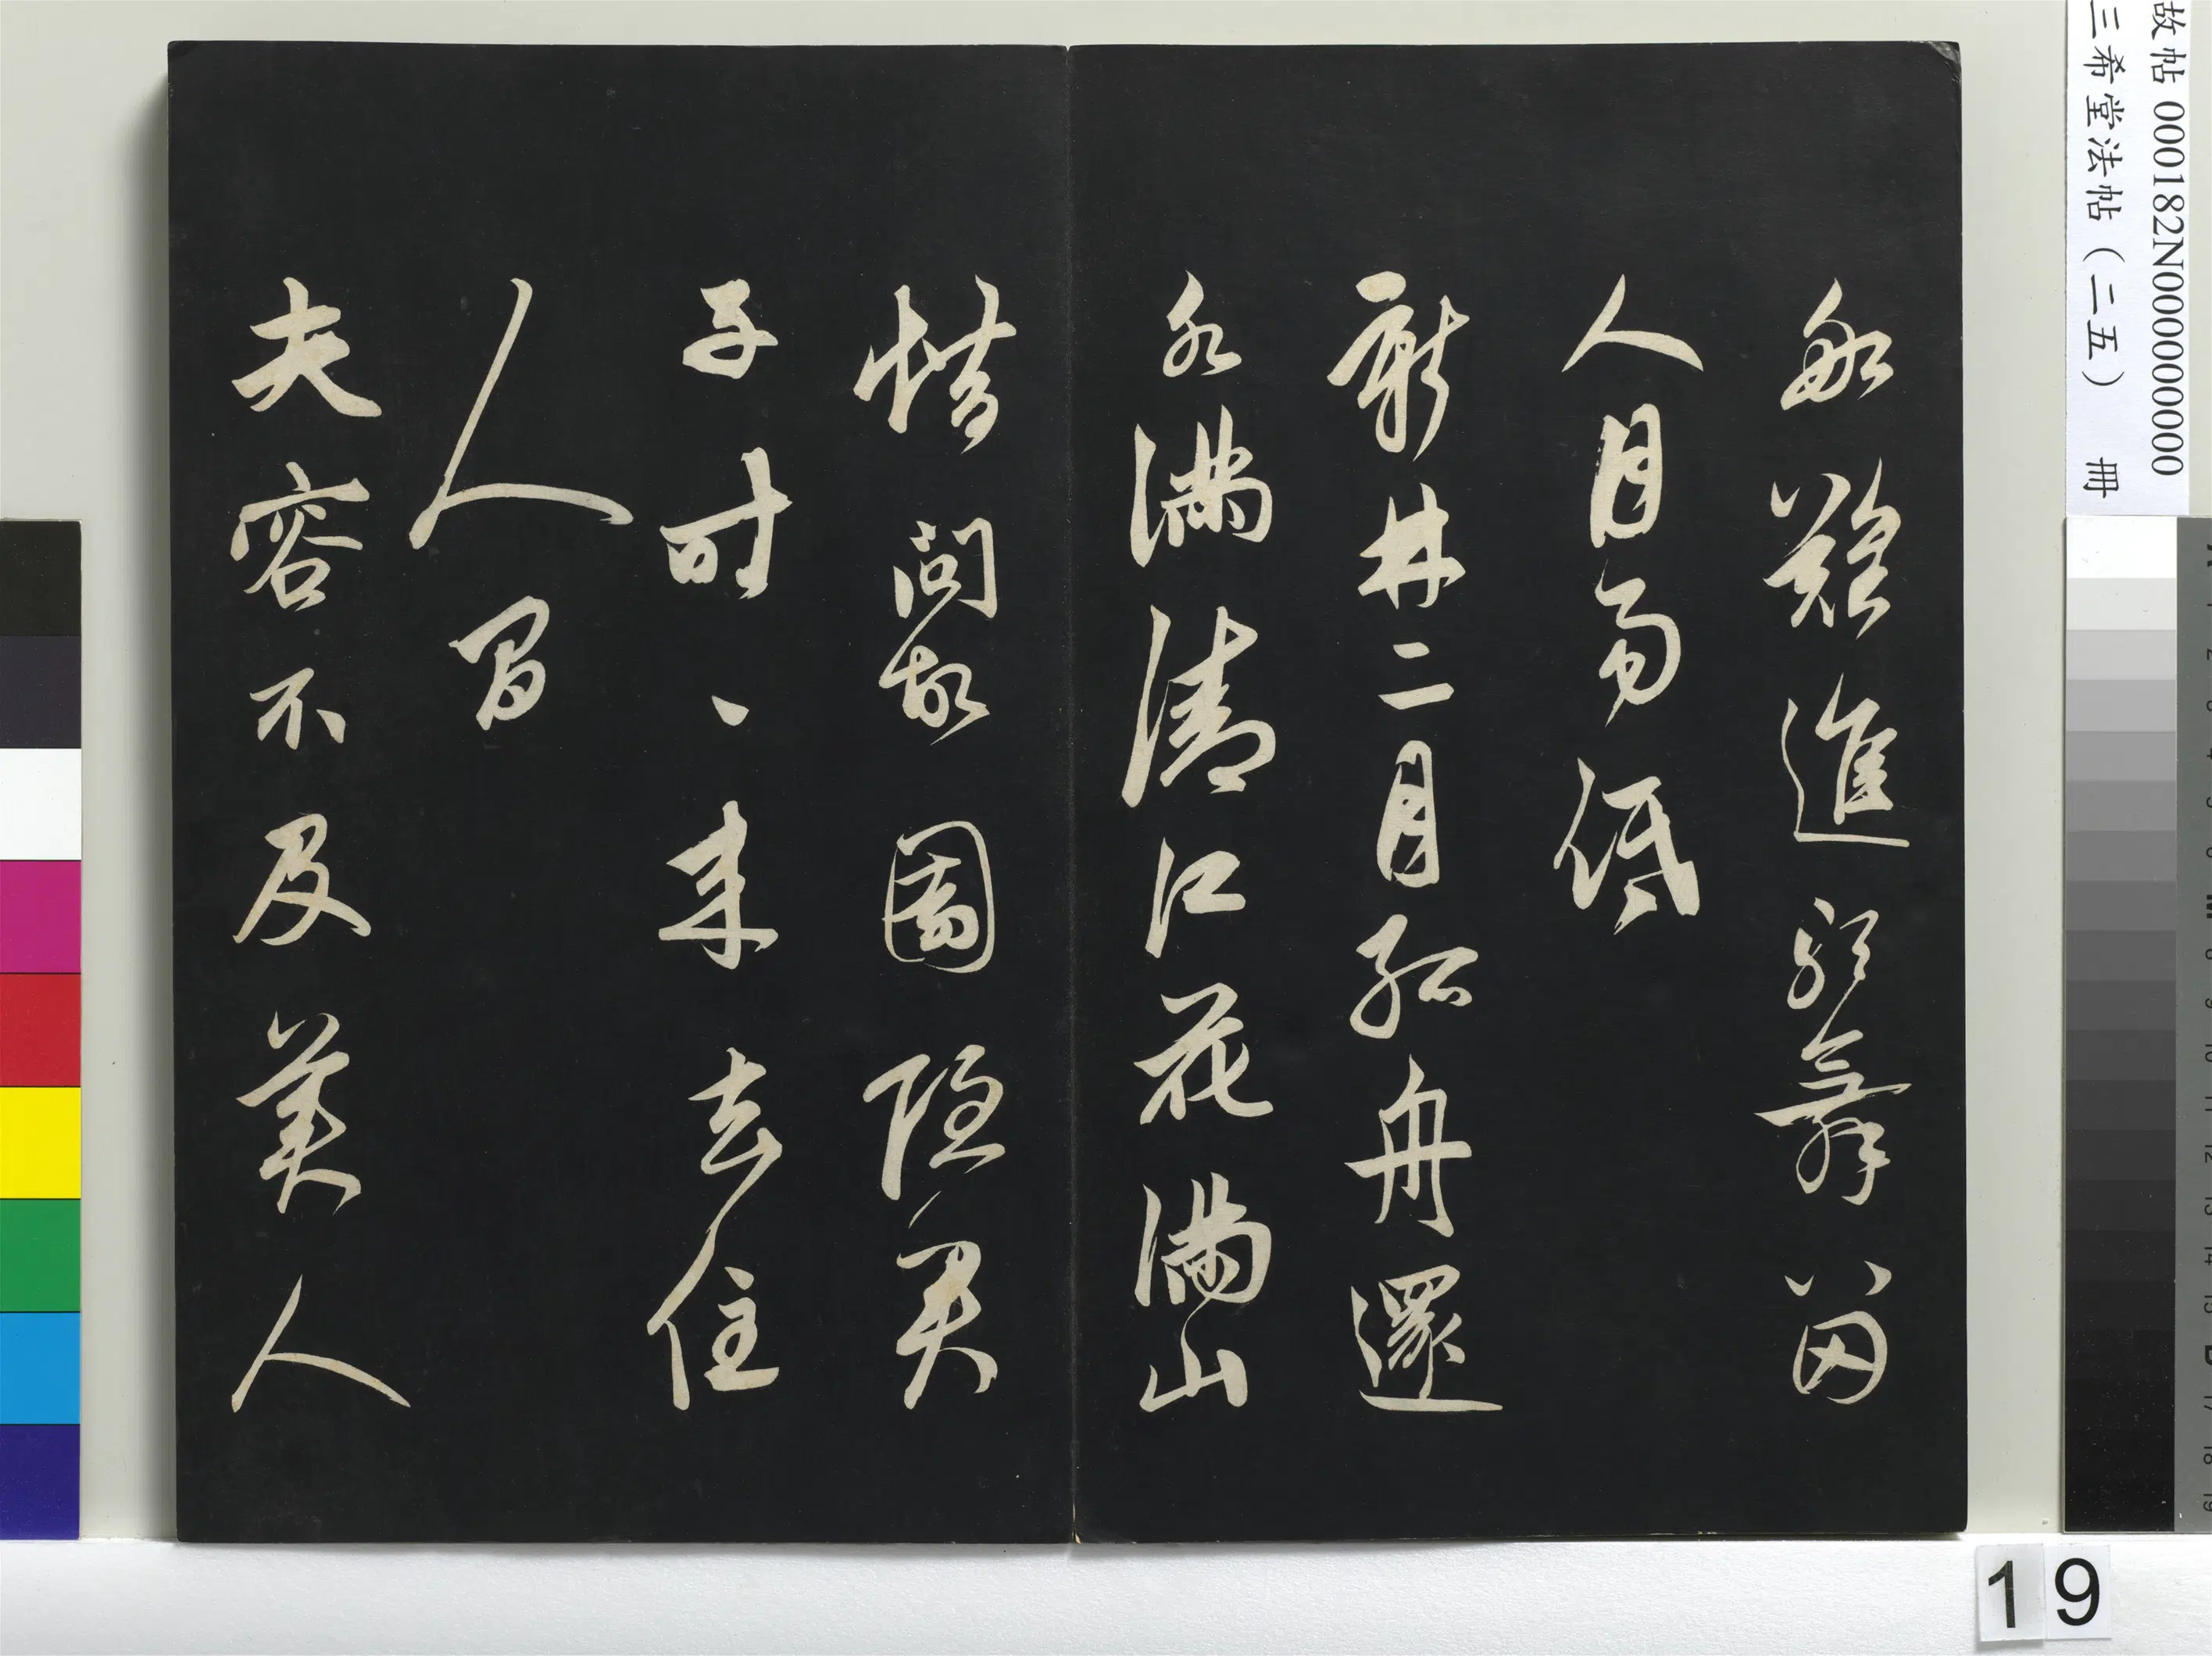 故帖 000182N000000000
三希堂法帖（二五） 冊
船難進歌舞留
人月易低
新林二月孤舟還
水滿清江花滿山
借問故園隱君
子時、來去住
人間
夫容不及美人
19